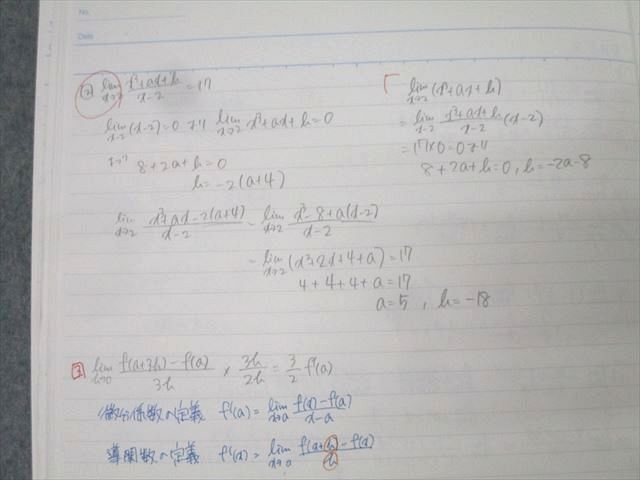 No.
Date
② lim x→2 (x³+ax+b)/(x-2) = 17
lim x→2 (x-2)=0 より lim x→2 x³+ax+b=0
8+2a+b=0
b=-2(a+4)
lim x→2 (x³+ax-2(a+4))/(x-2) = lim x→2 (x³-8+a(x-2))/(x-2)
= lim x→2 (x²+2x+4+a)=17
4+4+4+a=17
a=5 , b=-18
lim x→2 (x³+ax+b)
= lim x→2 (x³+ax+b)/(x-2) (x-2)
=17×0=0より
8+2a+b=0, b=-2a-8
3 lim h→0 (f(a+3h)-f(a))/3h × 3h/2h = 3/2 f'(a)
微分係数の定義 f'(a) = lim x→a (f(x)-f(a))/(x-a)
導関数の定義 f'(x) = lim x→0 (f(x+h)-f(x))/h